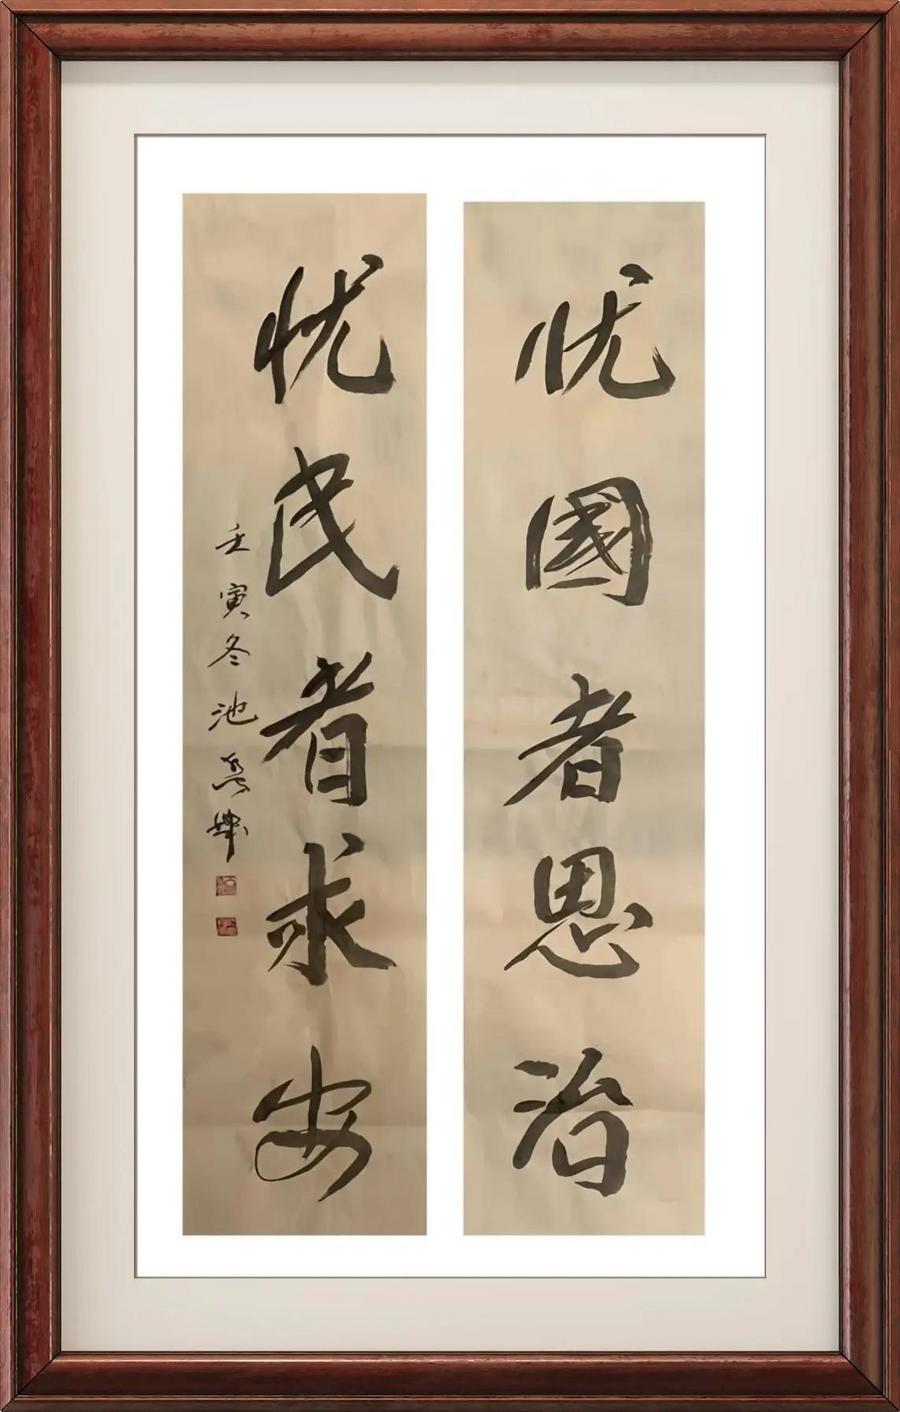 忧國者思治
忧民者求安
壬寅冬池